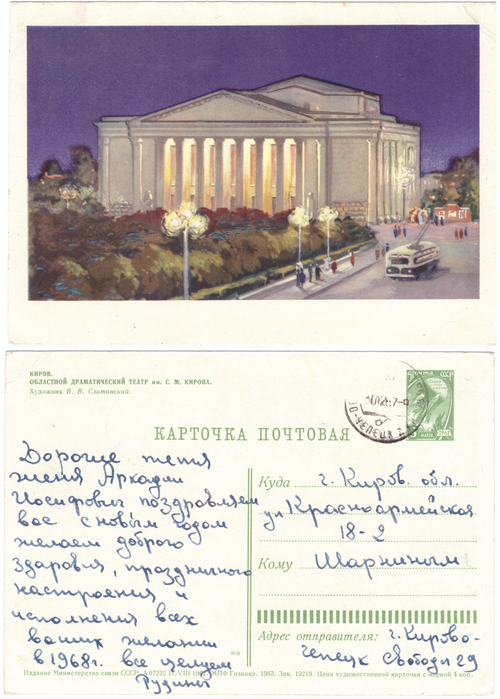 КИРОВ.
ОБЛАСТНОЙ ДРАМАТИЧЕСКИЙ ТЕАТР им. С. М. КИРОВА.
Художник В. В.
ПОЧТА СССР
КАРТОЧКА ПОЧТОВАЯ
Дорогие тетя
Женя Аркадий
Иосифовы поздравляем
вас с новым годом
желаем доброго
здаровья, праздничного
настроения и
исполнения всех
ваших желании
в 1968 г. все целуем
Рудины
Куда г. Киров. обл.
ул Красноармейская
18-2
Кому Шарниным
Адрес отправителя: г. Кирово-
Чепецк Свободы 29
Издание Министерства связи СССР. МПФ Гознака. 1963. Зак. 19219. Цена художественной карточки с маркой 4 коп.